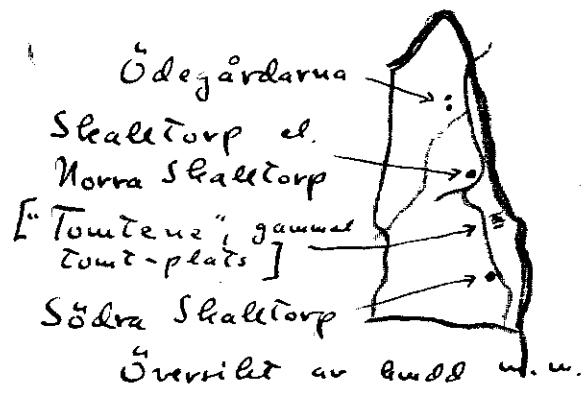 Ödegårdarna
Skalltorp el.
Norra Skalltorp
["Tomtene", gammal
tomt-plats]
Södra Skalltorp
Översikt av m. m.